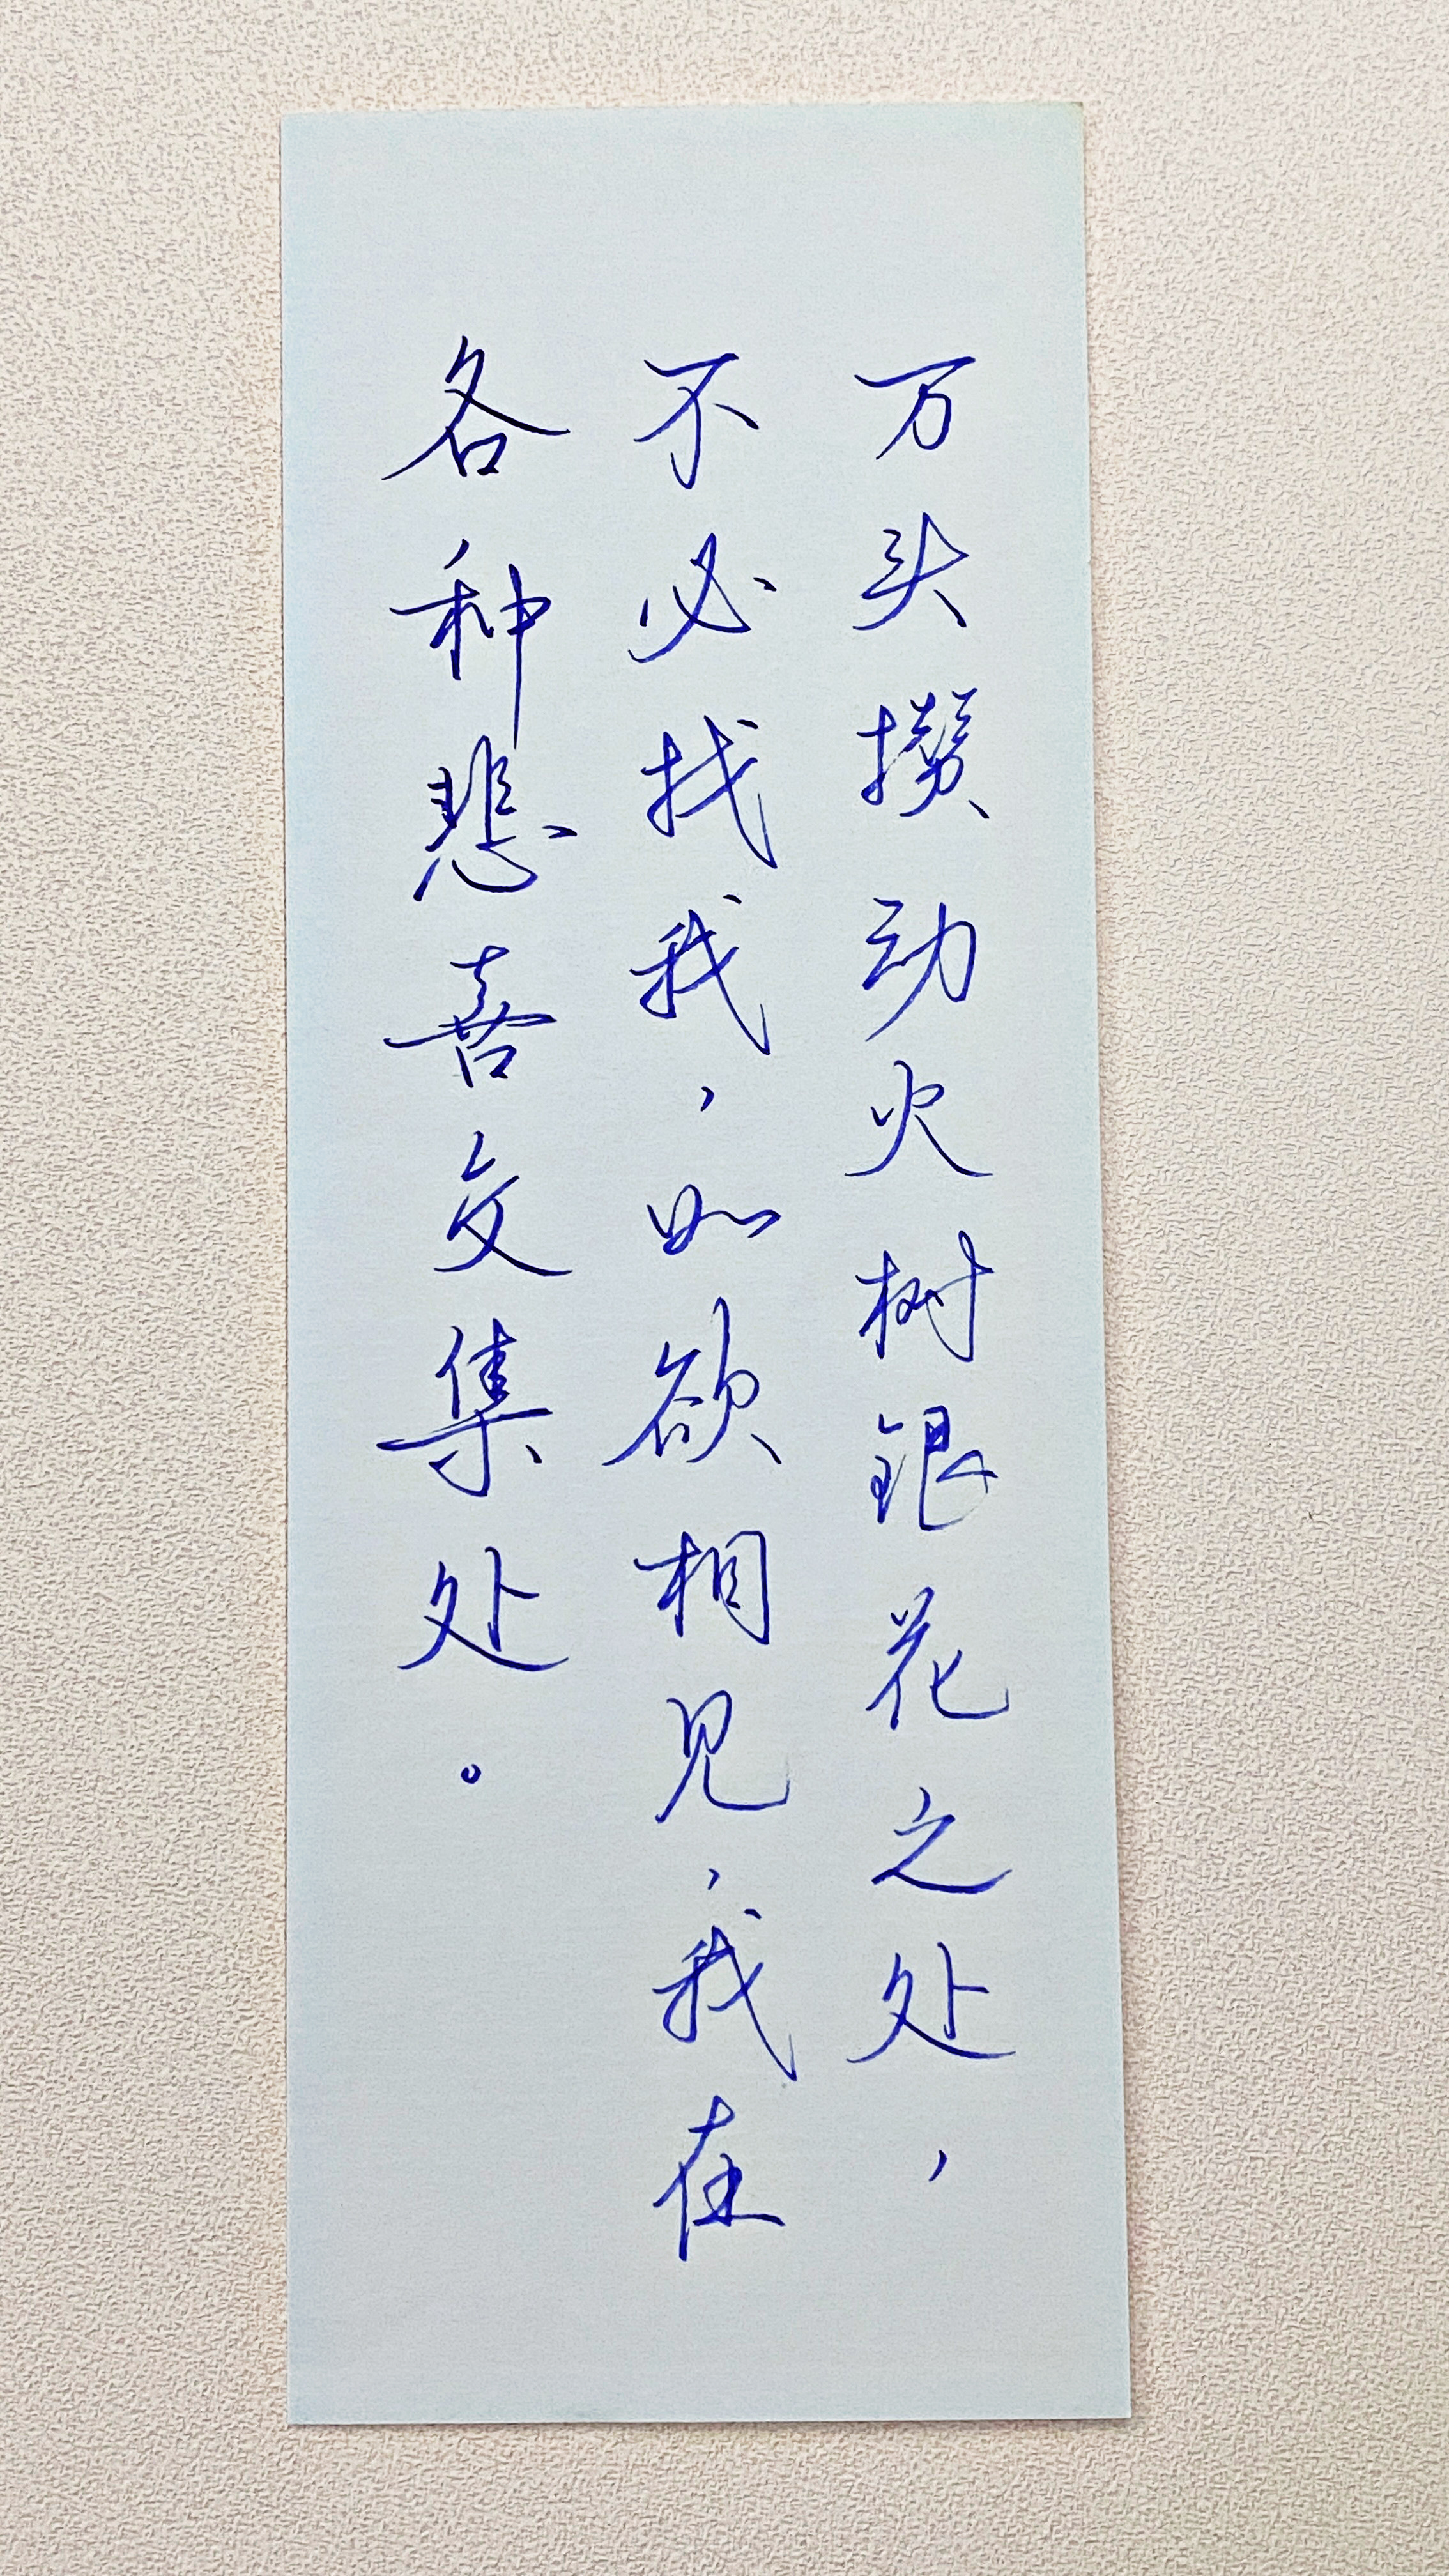 万头攒动火树银花之处，
不必找我，如欲相见，我在
各种悲喜交集处。